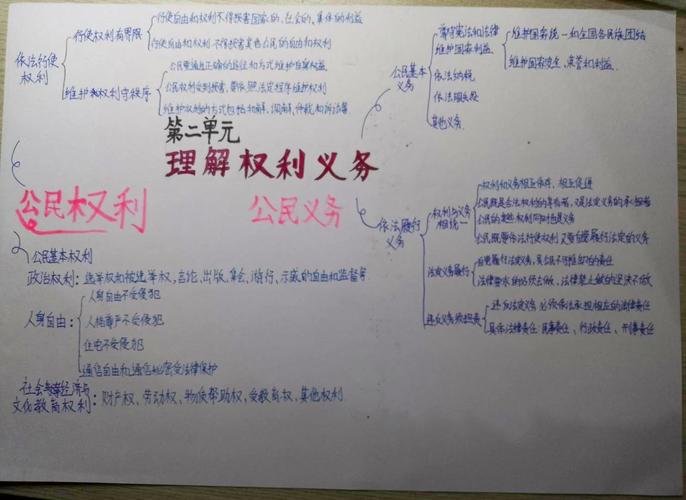 第二单元
理解权利义务
公民权利
依法行使权利
行使权利有界限
行使自由和权利不得损害国家的、社会的、集体的利益
行使自由和权利不得损害其他公民的自由和权利
维护权利守秩序
公民要通过正确的途径和方式维护自身权益
公民权利受到损害,要依照法定程序维护权利
维护权利的方式包括和解、调解、仲裁和诉讼等
公民基本权利
政治权利:选举权和被选举权,言论、出版、集会、游行、示威的自由和监督等
人身自由:
人身自由不受侵犯
人格尊严不受侵犯
住宅不受侵犯
通信自由和通信秘密受法律保护
社会经济与
文化教育权利:财产权、劳动权、物质帮助权、受教育权、其他权利
公民义务
公民基本义务
遵守宪法和法律
维护国家利益
维护国家统一和全国各民族团结
维护国家安全、荣誉和利益
依法纳税
依法服兵役
其他义务
依法履行义务
权利与义务相统一
权利和义务相互依存、相互促进
公民既是合法权利的享有者,又是法定义务的承担者
公民的某些权利同时也是义务
公民既要依法行使权利又要自觉履行法定的义务
法定义务须履行
法律要求的必须去做,法律禁止做的坚决不做
违反义务须担责
违反法定义务必须依法承担相应的法律责任
具体法律责任:民事责任、行政责任、刑事责任